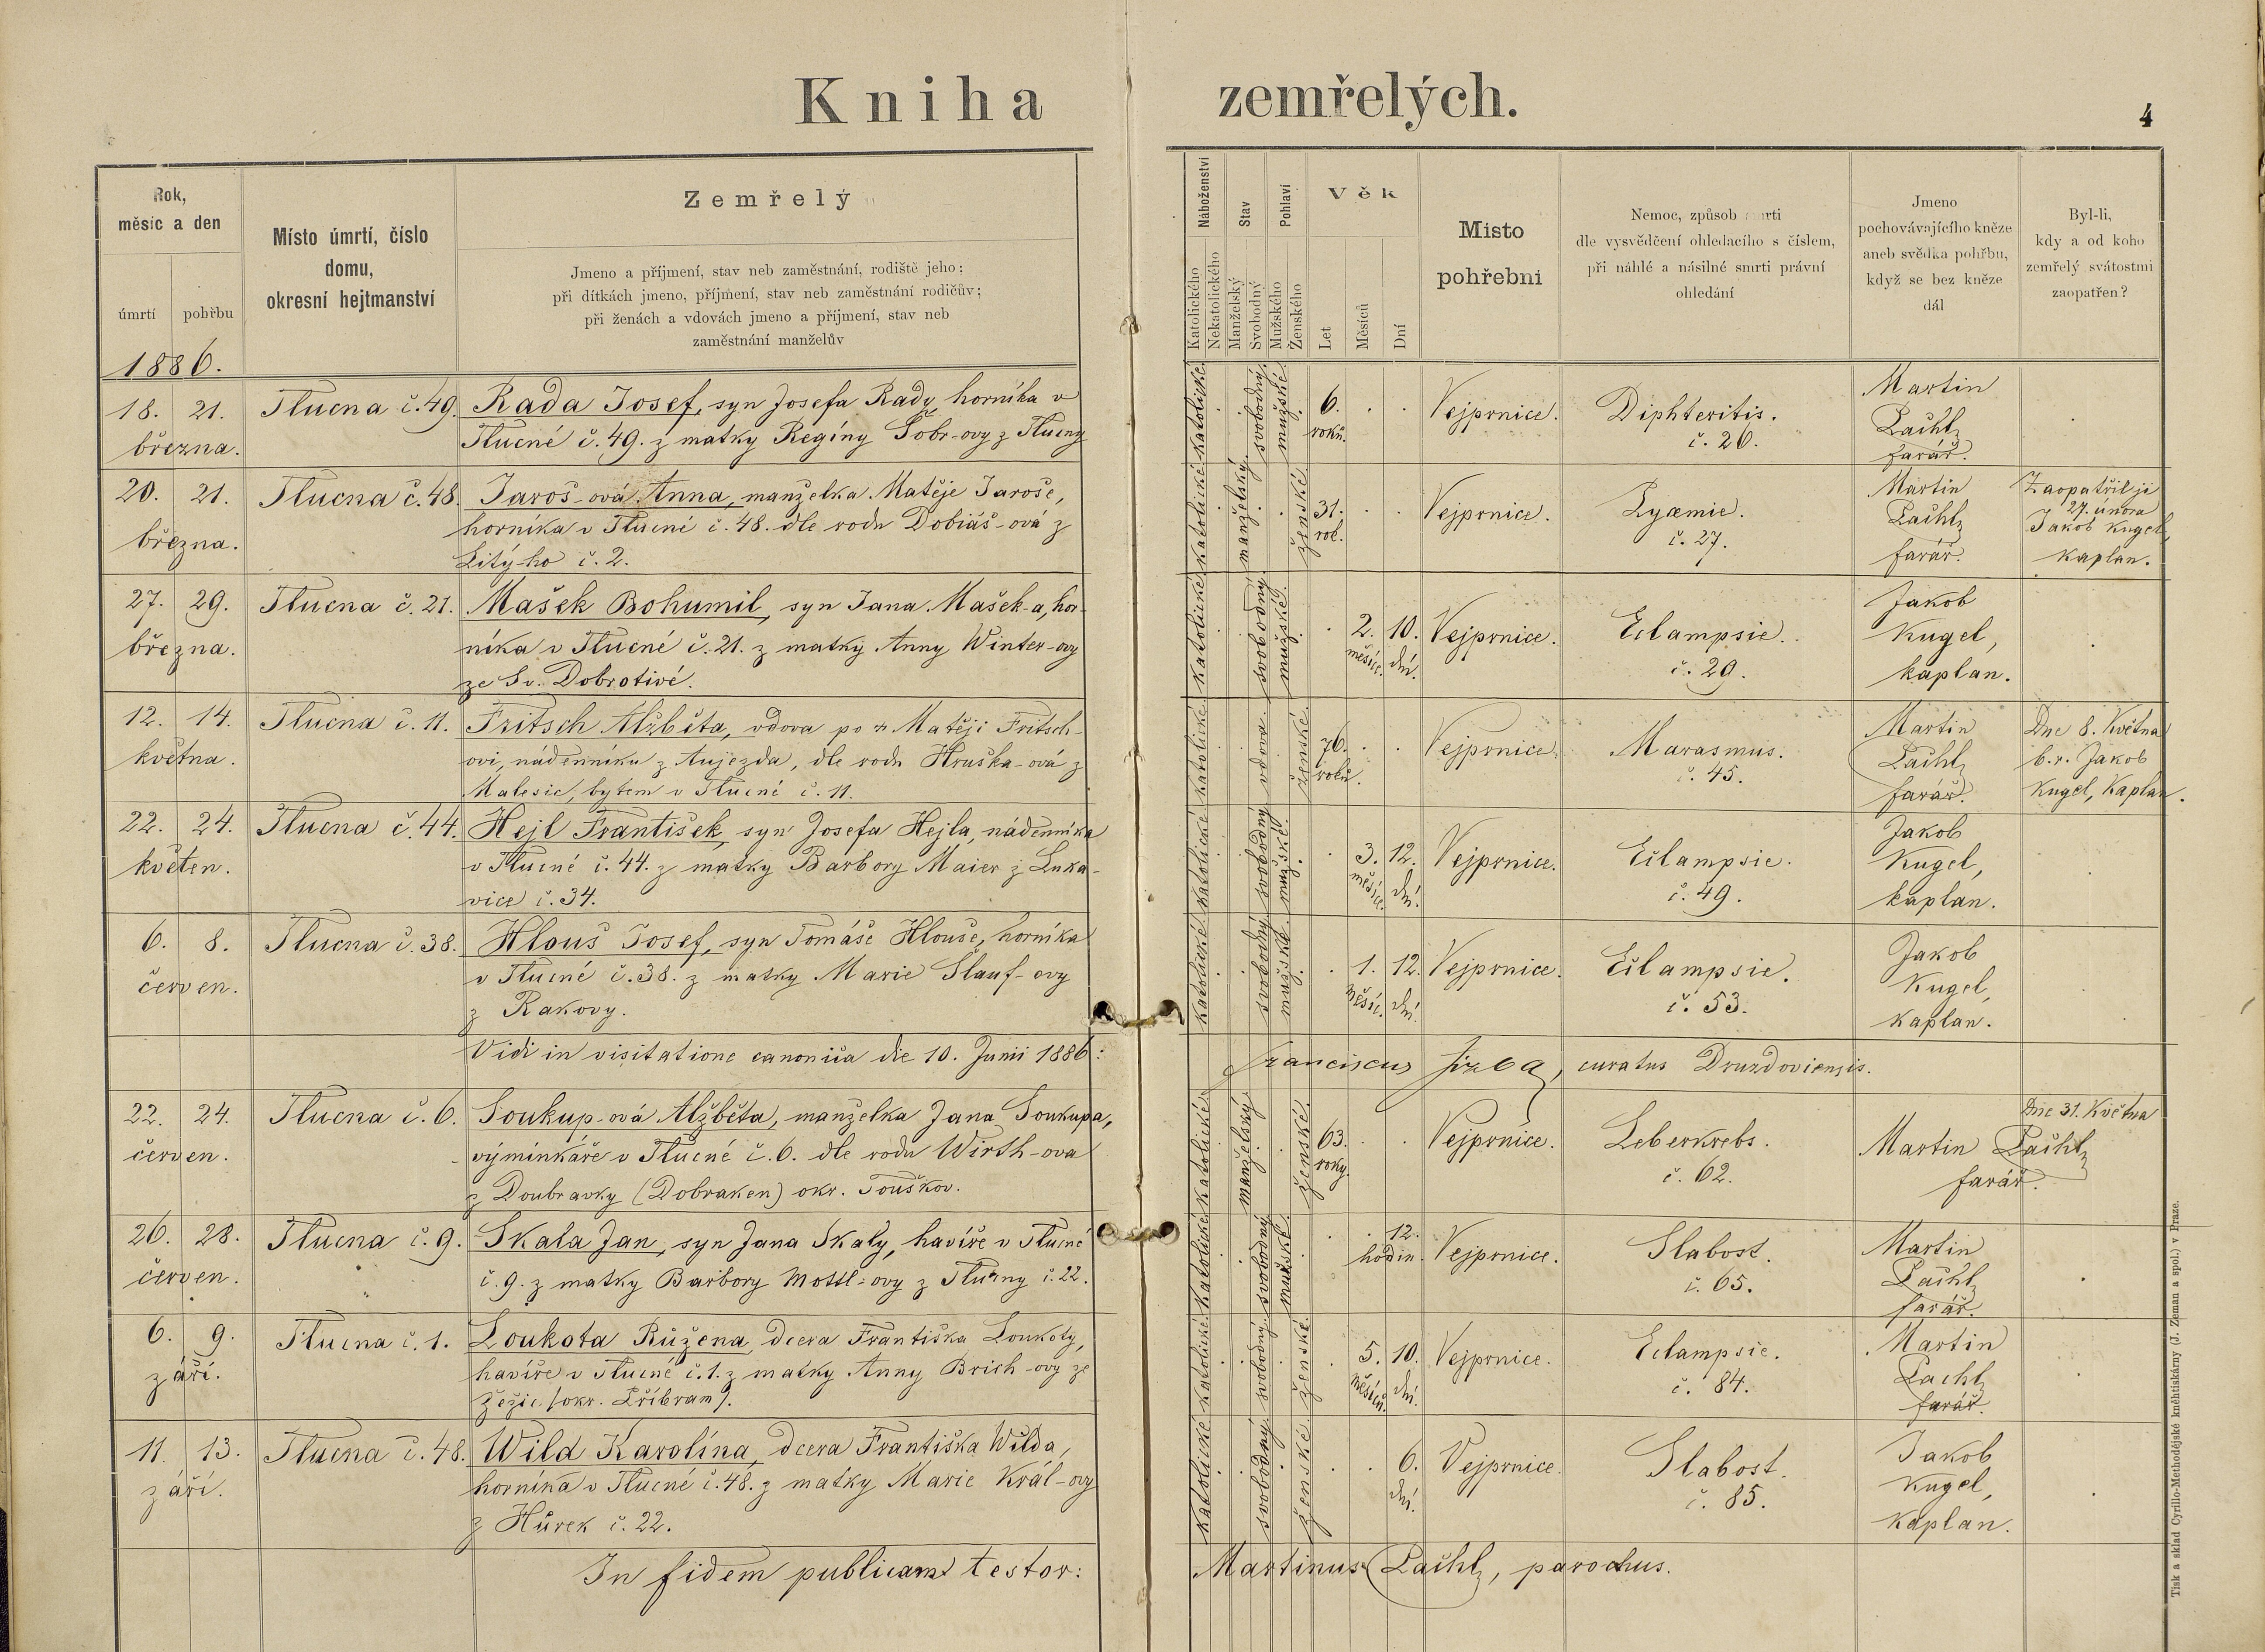 Kniha zemřelých.
4
Rok,
měsíc a den
úmrtí
pohřbu
Místo úmrtí, číslo
domu,
okresní hejtmanství
Zemřelý
Jmeno a příjmení, stav neb zaměstnání, rodiště jeho;
při dítkách jmeno, příjmení, stav neb zaměstnání rodičův;
při ženách a vdovách jmeno a příjmení, stav neb
zaměstnání manželův
Náboženství
Katolického
Nekatolického
Stav
Manželský
Svobodný
Pohlaví
Mužského
Ženského
Věk
Let
Měsíců
Dní
Misto
pohřebni
Nemoc, způsob smrti
dle vysvědčení ohledacího s číslem,
při náhlé a násilné smrti právní
ohledání
Jmeno
pochovávajícího kněze
aneb svědka pohřbu,
když se bez kněze
dál
Byl-li,
kdy a od koho
zemřelý svátostmi
zaopatřen?
1886.
18. 21.
března.
Tlucna č. 49.
Rada Josef, syn Josefa Rady, horníka v
Tlucné č. 49. z matky Regíny Šobr-ovy z Tlucny
katolické
svobodný
mužské
6.
roků.
Vejprnice.
Diphteritis.
č. 26.
Martin
Pachl
farář.
20. 21.
března.
Tlucna č. 48.
Jaroš-ová Anna, manželka Matěje Jaroše,
horníka v Tlucné č. 48. dle rodu Dobiáš-ová z
Litý-ho č. 2.
katolické
manželský
ženské
31.
rok.
Vejprnice.
Pyæmie.
č. 27.
Martin
Pachl
farář.
Zaopatřil ji
27. února
Jakob Kugel,
kaplan.
27. 29.
března.
Tlucna č. 21.
Mašek Bohumil, syn Jana Mašek-a, hor-
níka v Tlucné č. 21. z matky Anny Winter-ovy
ze Sv. Dobrotivé.
katolické
svobodný
mužské
2. 10.
měsíce. dní.
Vejprnice.
Eclampsie.
č. 29.
Jakob
Kugel,
kaplan.
12. 14.
května.
Tlucna č. 11.
Fritsch Alžběta, vdova po † Matěji Fritsch-
ovi, nádenníku z Aujezda, dle rodu Hruška-ová z
Malesic, bytem v Tlucné č. 11.
katolické
vdova
ženské
76.
roků.
Vejprnice.
Marasmus.
č. 45.
Martin
Pachl
farář.
Dne 8. Května
b.r. Jakob
Kugel, Kaplan.
22. 24.
květen.
Tlucna č. 44.
Hejl František, syn Josefa Hejla, nádenníka
v Tlucné č. 44. z matky Barbory Maier z Luka-
vice č. 34.
katolické
svobodný
mužské
3. 12.
měsíce. dní.
Vejprnice.
Eclampsie.
č. 49.
Jakob
Kugel,
kaplan.
6. 8.
červen.
Tlucna č. 38.
Hlouš Josef, syn Tomáše Hlouše, horníka
v Tlucné č. 38. z matky Marie Šlauf-ovy
z Rakovy.
katolické
svobodný
mužské
1. 12.
měsíc. dní.
Vejprnice.
Eclampsie.
č. 53.
Jakob
Kugel,
kaplan.
Vidi in visitatione canonica die 10. Junii 1886: Franciscus curatus
22. 24.
červen.
Tlucna č. 6.
Soukup-ová Alžběta, manželka Jana Soukupa,
výminkáře v Tlucné č. 6. dle rodu Wirth-ova
z Doubravky (Dobraken) okr. Touškov.
katolické
manželský
ženské
63.
roky.
Vejprnice.
Leberkrebs.
č. 62.
Dne 31. Května
Martin Pachl
farář.
26. 28.
červen.
Tlucna č. 9.
Skala Jan, syn Jana Skaly, havíře v Tlucné
č. 9. z matky Barbory Mottl-ovy z Tlucny č. 22.
katolické
svobodný
mužské
12.
hodin.
Vejprnice.
Slabost.
č. 65.
Martin
Pachl
farář.
6. 9.
září.
Tlucna č. 1.
Loukota Růžena, dcera Františka Loukoty,
havíře v Tlucné č. 1. z matky Anny Brich-ovy ze
Žežic /okr. Příbram/.
katolické
svobodný
ženské
5. 10.
měsíců. dní.
Vejprnice.
Eclampsie.
č. 84.
Martin
Pachl
farář.
11. 13.
září.
Tlucna č. 48.
Wild Karolína, dcera Františka Wilda,
horníka v Tlucné č. 48. z matky Marie Král-ovy
z Hůrek č. 22.
katolické
svobodný
ženské
6.
dní.
Vejprnice.
Slabost.
č. 85.
Jakob
Kugel,
kaplan.
In fidem publicam testor: Martinus Pachl, parochus.
Tisk a sklad Cyrillo-Methodějské kněhtiskárny (J. Zeman a spol.) v Praze.